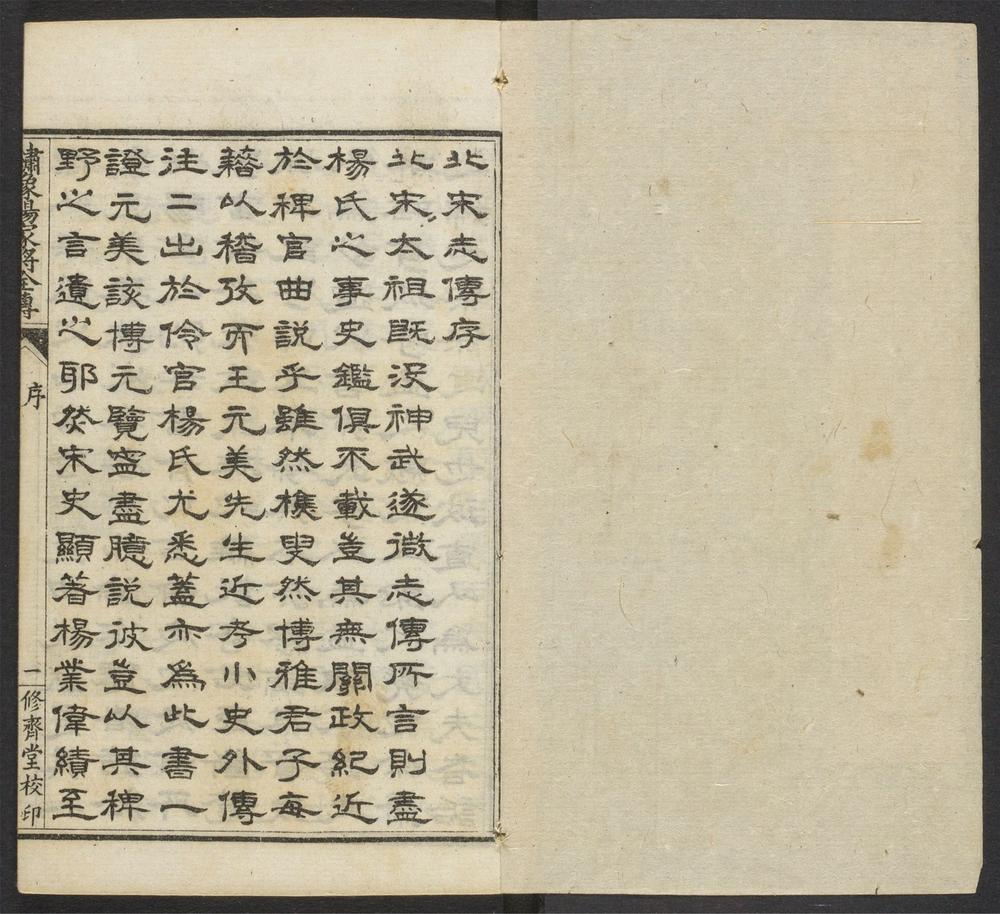 北宋志傳序
北宋太祖既没神武遂微志傳所言則盡
楊氏之事史鑑俱不載豈其無關政紀近
於稗官曲説乎雖然樵叟然博雅君子每
藉以稽攷而王元美先生近考小史外傳
注二出於伶官楊氏尤悉蓋亦為此書一
證元美該博元覽寍盡臆説彼豈以其稗
野之言遺之耶然宋史顯著楊業偉績至
繡像楊家將全傳
序
一
修齊堂校印